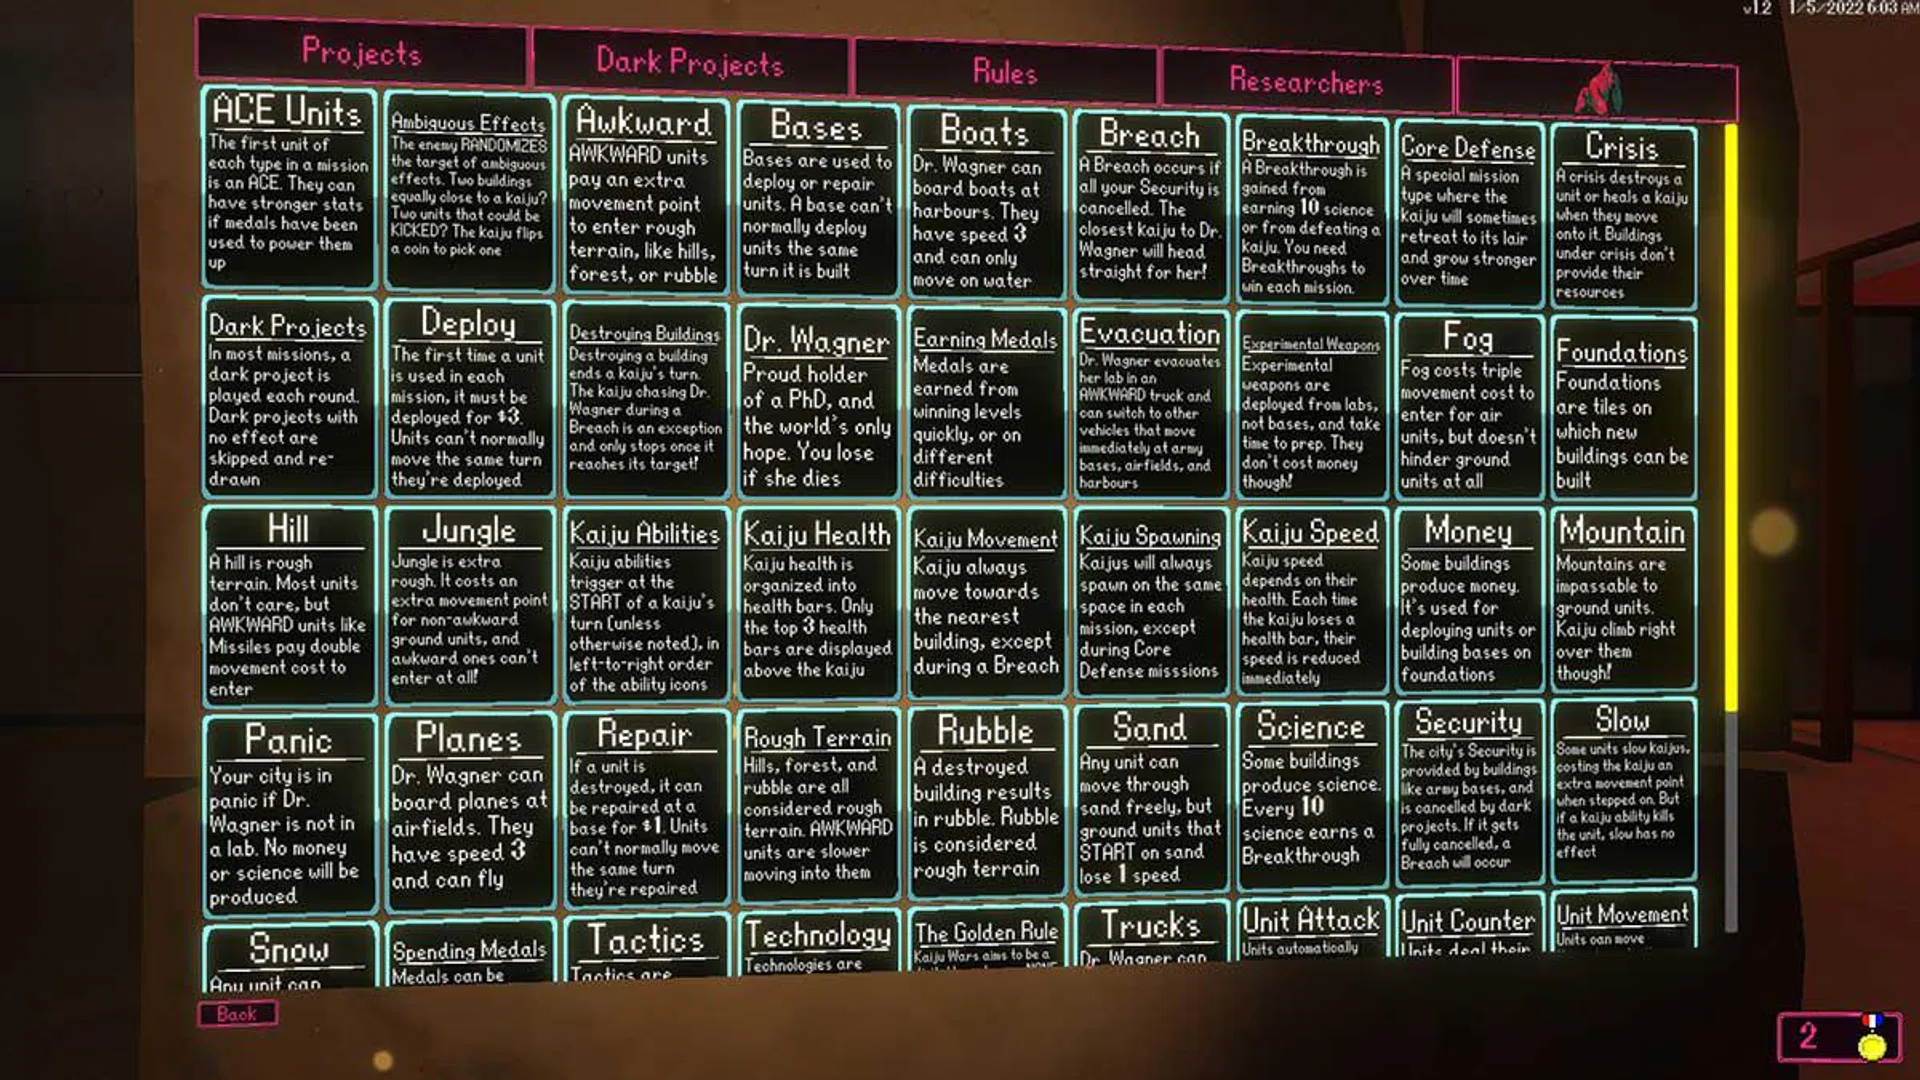 v1.2 1/5/2022 6:03 AM
Projects
Dark Projects
Rules
Researchers
ACE Units
The first unit of
each type in a mission
is an ACE. They can
have stronger stats
if medals have been
used to power them
up
Ambiguous Effects
The enemy RANDOMIZES
the target of ambiguous
effects. Two buildings
equally close to a kaiju?
Two units that could be
KICKED? The kaiju flips
a coin to pick one
Awkward
AWKWARD units
pay an extra
movement point
to enter rough
terrain, like hills,
forest, or rubble
Bases
Bases are used to
deploy or repair
units. A base can't
normally deploy
units the same
turn it is built
Boats
Dr. Wagner can
board boats at
harbours. They
have speed 3
and can only
move on water
Breach
A Breach occurs if
all your Security is
cancelled. The
closest kaiju to Dr.
Wagner will head
straight for her!
Breakthrough
A Breakthrough is
gained from
earning 10 science
or from defeating a
kaiju. You need
Breakthroughs to
win each mission.
Core Defense
A special mission
type where the
kaiju will sometimes
retreat to its lair
and grow stronger
over time
Crisis
A crisis destroys a
unit or heals a kaiju
when they move
onto it. Buildings
under crisis don't
provide their
resources
Dark Projects
In most missions, a
dark project is
played each round.
Dark projects with
no effect are
skipped and re-
drawn
Deploy
The first time a unit
is used in each
mission, it must be
deployed for $3.
Units can't normally
move the same turn
they're deployed
Destroying Buildings
Destroying a building
ends a kaiju's turn.
The kaiju chasing Dr.
Wagner during a
Breach is an exception
and only stops once it
reaches its target!
Dr. Wagner
Proud holder
of a PhD, and
the world's only
hope. You lose
if she dies
Earning Medals
Medals are
earned from
winning levels
quickly, or on
different
difficulties
Evacuation
Dr. Wagner evacuates
her lab in an
AWKWARD truck and
can switch to other
vehicles that move
immediately at army
bases, airfields, and
harbours
Experimental Weapons
Experimental
weapons are
deployed from labs,
not bases, and take
time to prep. They
don't cost money
though!
Fog
Fog costs triple
movement cost to
enter for air
units, but doesn't
hinder ground
units at all
Foundations
Foundations
are tiles on
which new
buildings can be
built
Hill
A hill is rough
terrain. Most units
don't care, but
AWKWARD units like
Missiles pay double
movement cost to
enter
Jungle
Jungle is extra
rough. It costs an
extra movement point
for non-awkward
ground units, and
awkward ones can't
enter at all!
Kaiju Abilities
Kaiju abilities
trigger at the
START of a kaiju's
turn (unless
otherwise noted), in
left-to-right order
of the ability icons
Kaiju Health
Kaiju health is
organized into
health bars. Only
the top 3 health
bars are displayed
above the kaiju
Kaiju Movement
Kaiju always
move towards
the nearest
building, except
during a Breach
Kaiju Spawning
Kaijus will always
spawn on the same
space in each
mission, except
during Core
Defense misssions
Kaiju Speed
Kaiju speed
depends on their
health. Each time
the kaiju loses a
health bar, their
speed is reduced
immediately
Money
Some buildings
produce money.
It's used for
deploying units or
building bases on
foundations
Mountain
Mountains are
impassable to
ground units.
Kaiju climb right
over them
though!
Panic
Your city is in
panic if Dr.
Wagner is not in
a lab. No money
or science will be
produced
Planes
Dr. Wagner can
board planes at
airfields. They
have speed 3
and can fly
Repair
If a unit is
destroyed, it can
be repaired at a
base for $1. Units
can't normally move
the same turn
they're repaired
Rough Terrain
Hills, forest, and
rubble are all
considered rough
terrain. AWKWARD
units are slower
moving into them
Rubble
A destroyed
building results
in rubble. Rubble
is considered
rough terrain
Sand
Any unit can
move through
sand freely, but
ground units that
START on sand
lose 1 speed
Science
Some buildings
produce science.
Every 10
science earns a
Breakthrough
Security
The city's Security is
provided by buildings
like army bases, and
is cancelled by dark
projects. If it gets
fully cancelled, a
Breach will occur
Slow
Some units slow kaijus,
costing the kaiju an
extra movement point
when stepped on. But
if a kaiju ability kills
the unit, slow has no
effect
Snow
Any unit can
Spending Medals
Medals can be
Tactics
Tactics are
Technology
Technologies are
The Golden Rule
Kaiju Wars aims to be a
Trucks
Dr. Wagner can
Unit Attack
Units automatically
Unit Counter
Units deal their
Unit Movement
Units can move
Back
2